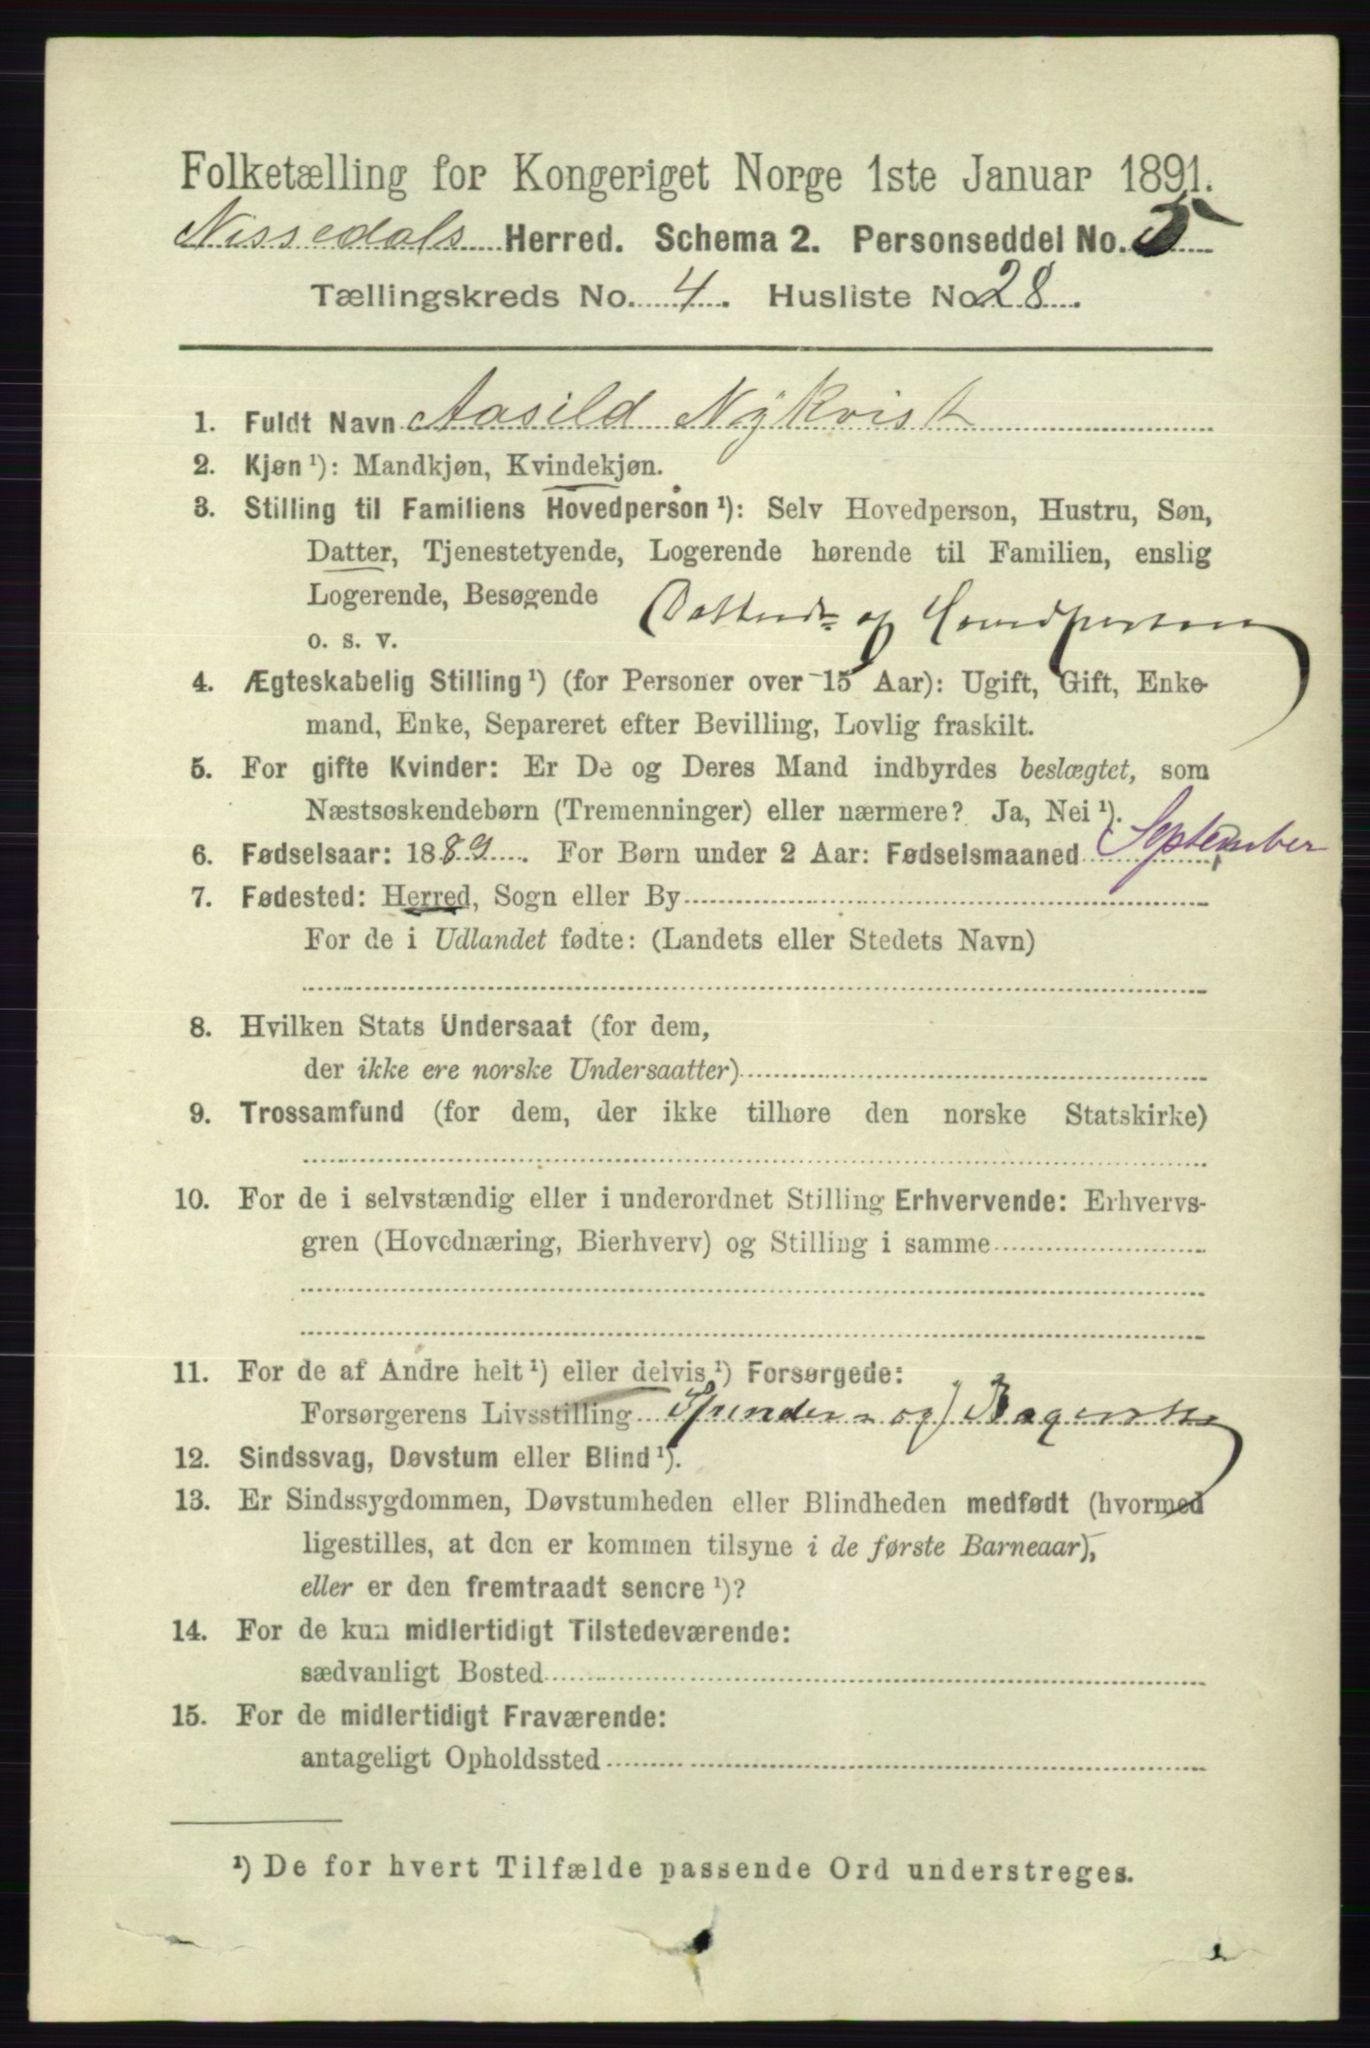 Folketælling for Kongeriget Norge 1ste Januar 1891.
Nissedals Herred. Schema 2. Personseddel No. 5
Tællingskreds No. 4. Husliste No 28.
1. Fuldt Navn Aasild Nÿkvist
2. Kjøn ¹): Mandkjøn, Kvindekjøn.
3. Stilling til Familiens Hovedperson ¹): Selv Hovedperson, Hustru, Søn,
Datter, Tjenestetyende, Logerende hørende til Familien, enslig
Logerende, Besøgende
o. s. v. og Hovedperson
4. Ægteskabelig Stilling ¹) (for Personer over 15 Aar): Ugift, Gift, Enke-
mand, Enke, Separeret efter Bevilling, Lovlig fraskilt.
5. For gifte Kvinder: Er De og Deres Mand indbyrdes beslægtet, som
Næstsøskendebørn (Tremenninger) eller nærmere? Ja, Nei ¹).
6. Fødselsaar: 1889. For Børn under 2 Aar: Fødselsmaaned September
7. Fødested: Herred, Sogn eller By
For de i Udlandet fødte: (Landets eller Stedets Navn)
8. Hvilken Stats Undersaat (for dem,
der ikke ere norske Undersaatter)
9. Trossamfund (for dem, der ikke tilhøre den norske Statskirke)
10. For de i selvstændig eller i underordnet Stilling Erhvervende: Erhvervs-
gren (Hovednæring, Bierhverv) og Stilling i samme
11. For de af Andre helt ¹) eller delvis ¹) Forsørgede:
Forsørgerens Livsstilling Spinder- og Bagerske
12. Sindssvag, Døvstum eller Blind ¹).
13. Er Sindssygdommen, Døvstumheden eller Blindheden medfødt (hvormed
ligestilles, at den er kommen tilsyne i de første Barneaar),
eller er den fremtraadt senere ¹)?
14. For de kun midlertidigt Tilstedeværende:
sædvanligt Bosted
15. For de midlertidigt Fraværende:
antageligt Opholdssted
¹) De for hvert Tilfælde passende Ord understreges.